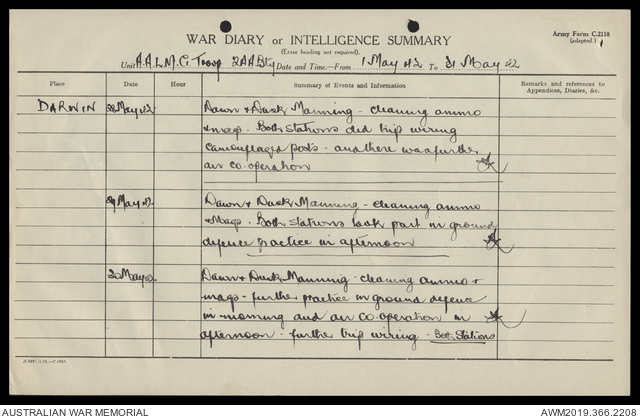 Army Form C.2118
(adapted.)
WAR DIARY or INTELLIGENCE SUMMARY
(Erase heading not required).
Unit A.A.L.M.G. Troop 2AA Bty Date and Time.—From 1 May 42 To 31 May 42
Place Date Hour Summary of Events and Information Remarks and references to Appendices, Diaries, &c.
DARWIN 28 May 42 Dawn & Dusk Manning - cleaning ammo
& mags. Both stations did trip wiring
camouflaged posts - and there was further
air co.operation
29 May 42 Dawn & Dusk Manning - cleaning ammo
& Mags. Both stations took part in ground
defence practice in afternoon
30 May 42 Dawn & Dusk Manning - cleaning ammo &
mags - further practice in ground defence
in morning and air co.operation in
afternoon - further trip wiring - Both Stations
AUSTRALIAN WAR MEMORIAL
AWM2019.366.2208